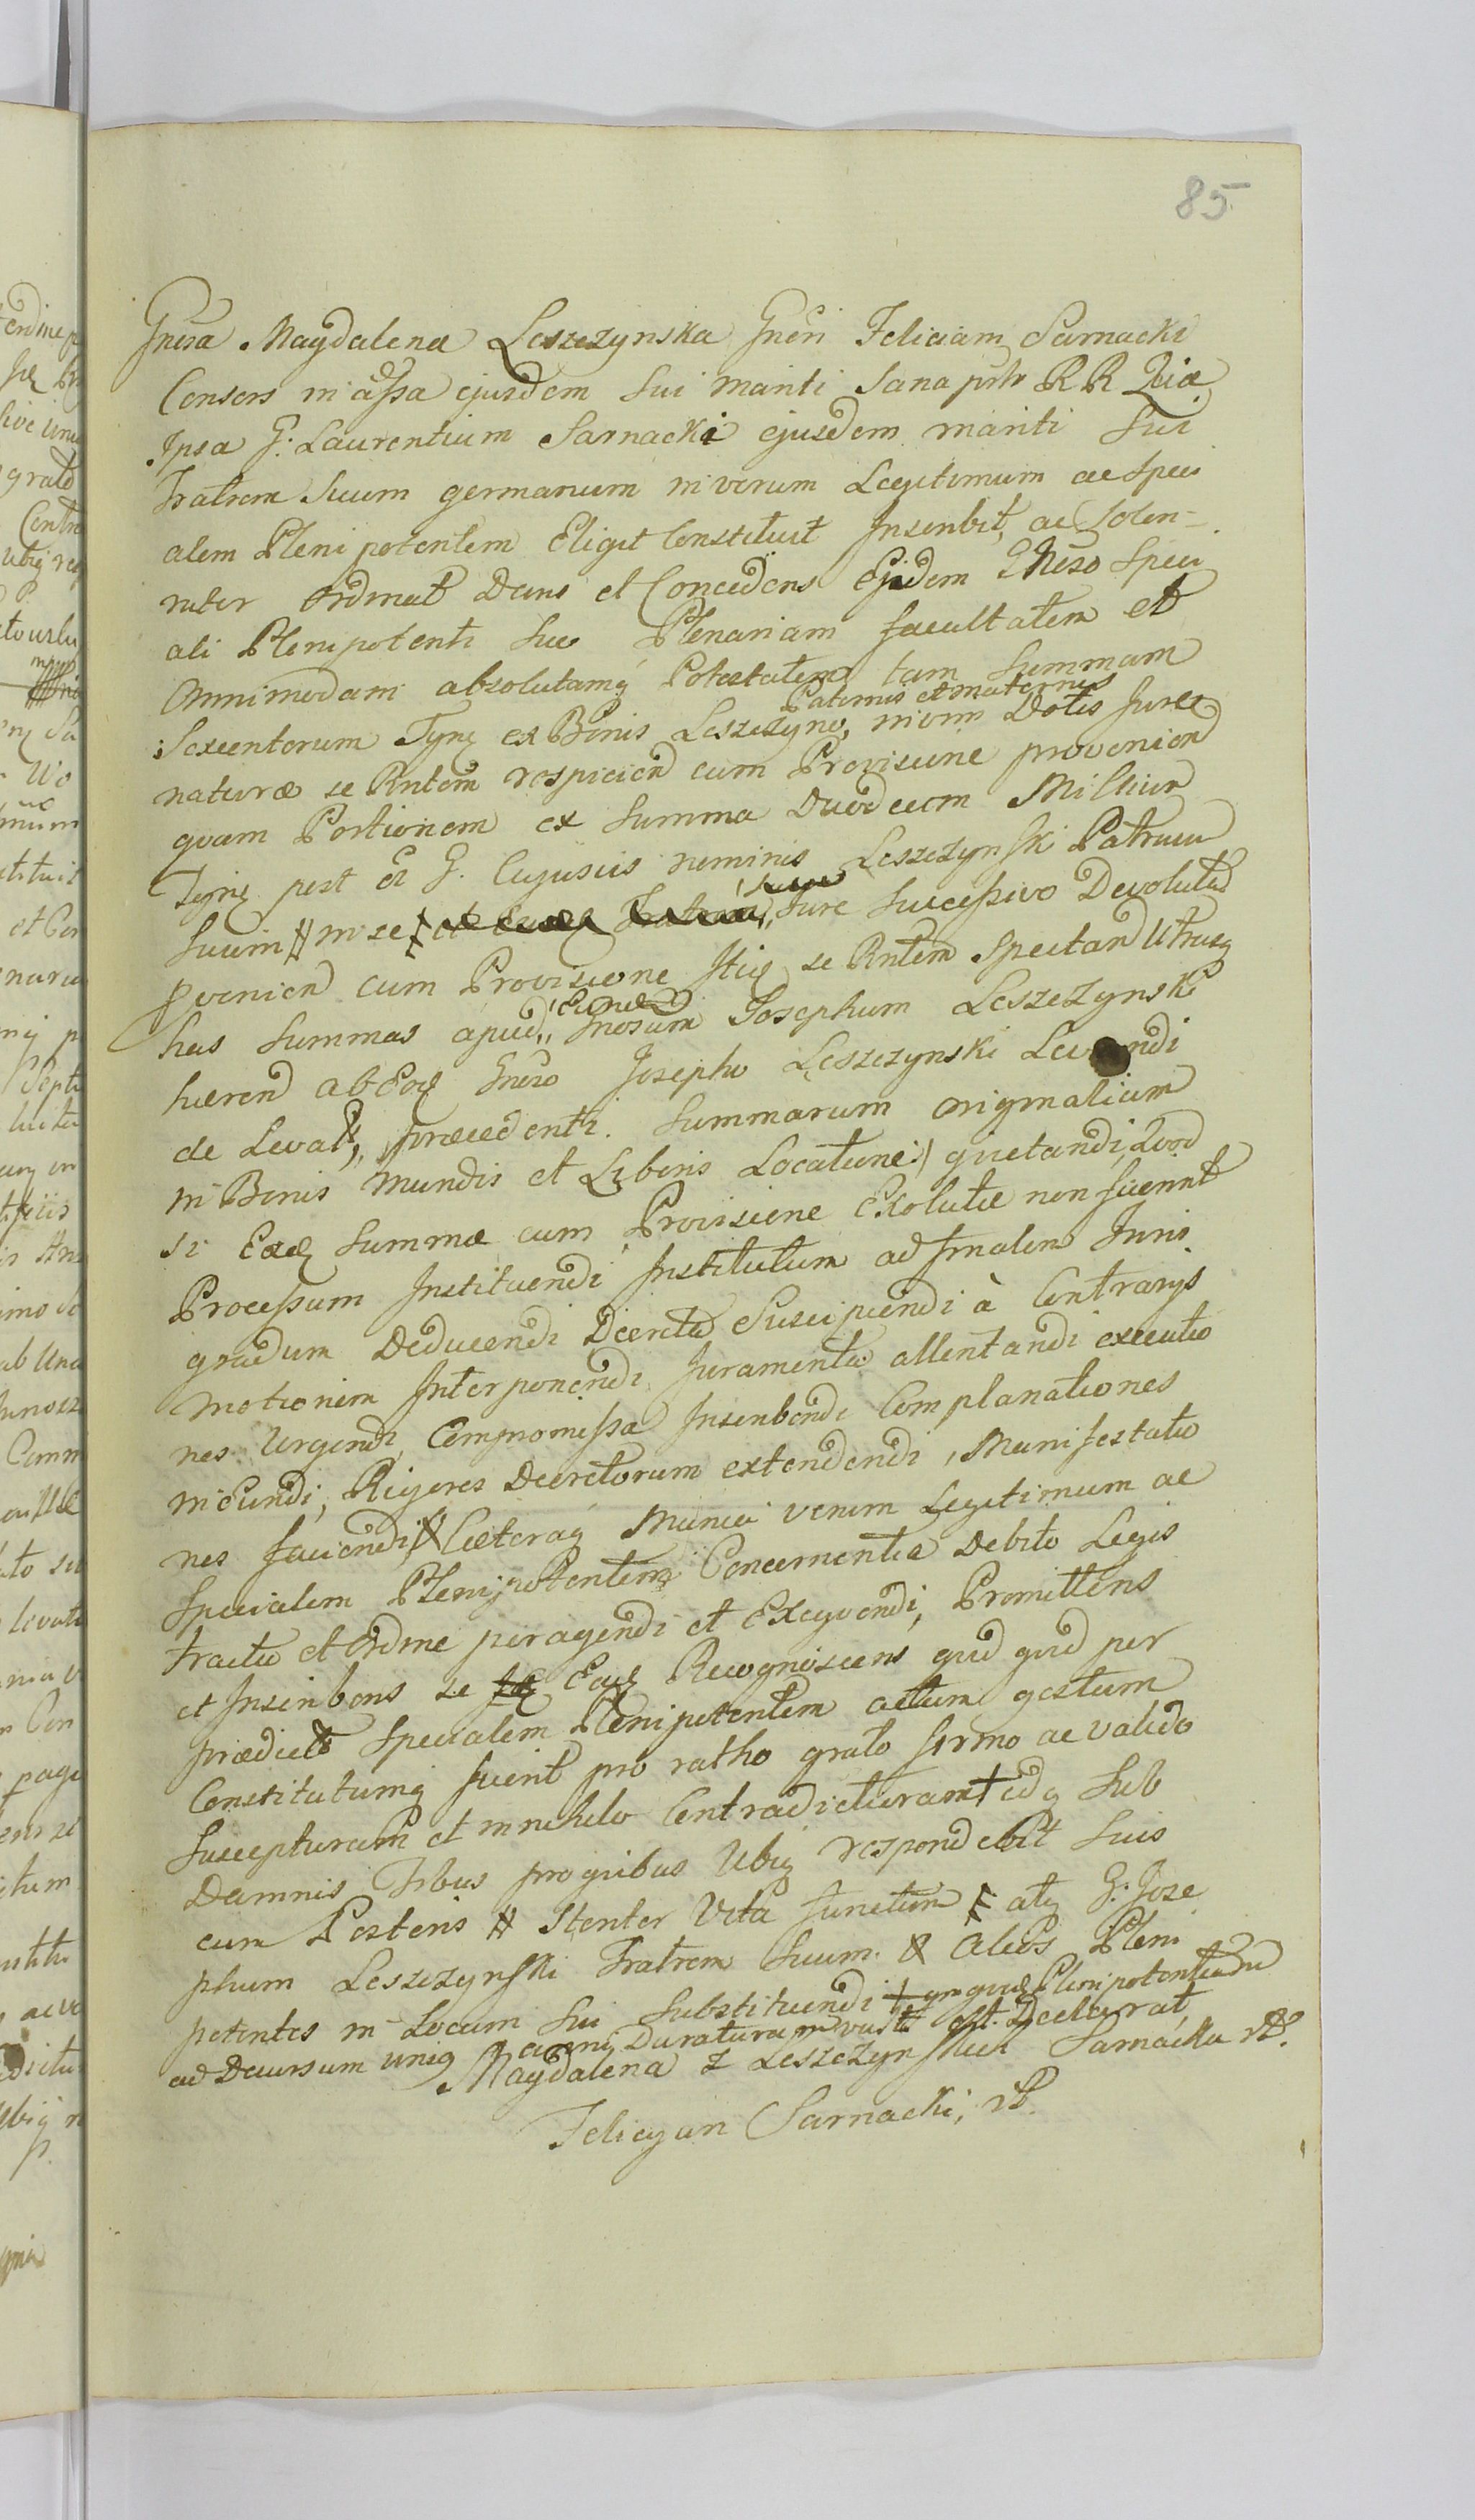 85
Gnesa Magdalena Leszczynska Gnesi Feliciani Sarnacki
Consors in assa ejusdem sui mariti Sana pnte R R
Ipsa G: Laurentium Sarnacki ejusdem mariti sui
Fratrem Suum germanum in verum Legitimum ac speci
alem Plenipotentem Eligit Constituit Inscribit, ac Solen-
niter Ordinat Dans et Concedens Ejdem Gneso Speci
ali Plenipotenti suo Plenariam facultatem et
Omnimodam absolutamq Potestatem tam Summam
Patrnis et maternis
Sexcentorum Tynf ex Bonis Leszczyno, in vim Dotis Jure
naturæ se Rntem respicien cum Provisione provenien
quam Portionem ex Summa Duodecim Millium
Tynf post G. Cujusvis nominis Leszczynski Patruum
Suum in se Jure Successivo Devolutas
pvenien cum Provisione se Rntem Spectan Utrasq
has Summas apud Gnosum Josephum Leszczynski
hæren ab Eoq Gneso Josepho Leszczynski Levandi
de Levat, præcedenti Summarum originalium
in Bonis Mundis et Liberis Locatione quietandi, Quod
si Exq Summæ cum Provisione Exolutæ non fuerint
Processum Instituendi Institutum ad finalem Juris
gradum Deducendi Decreta Suscipiendi à Contrarys
motionem Interponendi Juramenta allentandi executio
nes Urgendi Compromissa Inscribendi Complanationes
ineundi, Rigores Decretorum extendendi, Manifestatio
nes faciendi Cæteraq Munia verum Legitimum ac
Specialem Plenipotentem Concernentia Debito Legis
tractu et Ordine peragendi et Exequendi, Promittens
et Inscribens se Recognoscens quid quid per
prædict Specialem Plenipotentem actum gestum
Constitutumq fuerit pro ratho grato firmo ac valido
Suscepturam et in nihilo Contradicturam idq Sub
Damnis pro quibus Ubiq respondebit Suis
cum Posteris Vita functum atq G: Jose
phum Leszczynski Fratrem Suum. & alios Pleni
potentes in Locum Sui Substituendi Plenipotentia
ad Decursum unius anni Duraturam est. Declarat
Magdalena z Leszczynskich Sarnacka
Felicyan Sarnacki,